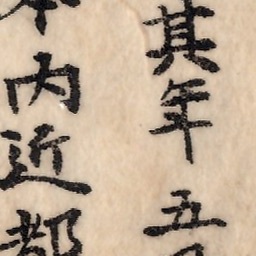 其年五
内近都